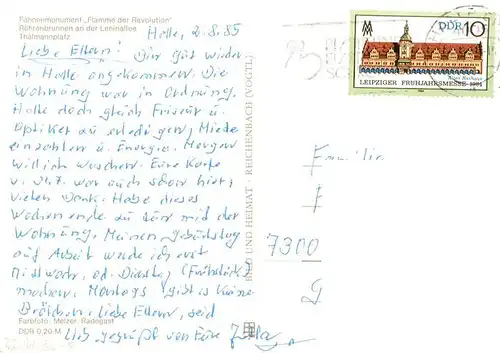 Fahnenmonument „Flamme der Revolution"
Röhrenbrunnen an der Leninallee
Thälmannplatz
Halle, 2.8.85
Liebe Eltern! Bin gut wieder
in Halle angekommen. Die
Wohnung war in Ordnung.
Hatte doch gleich Friseur u.
Optiker zu erledigen, Miete
einzahlen u. Energie. Morgen
will ich waschen. Eure Karte
v. 24.7. war auch schon hier,
vielen Dank. Habe dieses
Wochenende zu tun mit der
Wohnung. Meinen Geburtstag
auf Arbeit werde ich erst
Mittwoch, od. Dienstag (Frühstück)
machen. Montags gibt es keine
Brötchen. Liebe Eltern, seid
lieb gegrüßt von Eure
Farbfoto: Melzer, Radegast
DDR 0,20 M
BILD UND HEIMAT · REICHENBACH (VOGTL)
DDR 10
MM
Altes Rathaus
LEIPZIGER FRÜHJAHRSMESSE 1984
Familie
F
7300
G